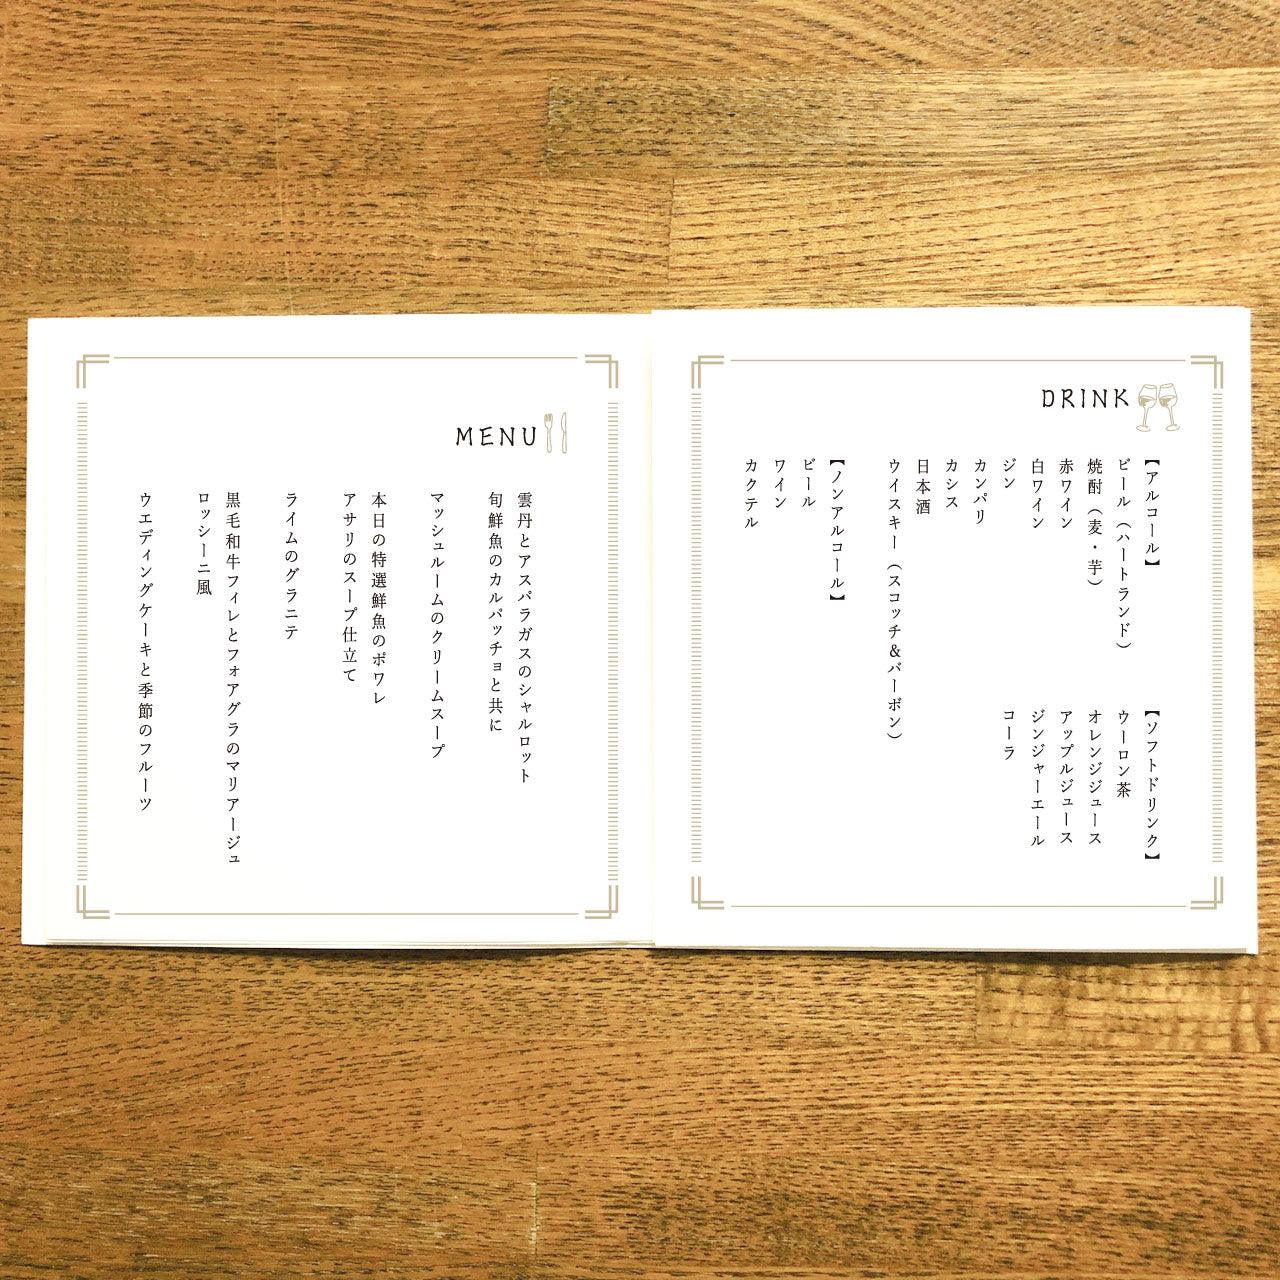 DRINK
【アルコール】
ビール（ハートランド）
焼酎（麦・芋）
赤ワイン
白ワイン
ジン
カンパリ
カシス
日本酒
ウイスキー（スコッチ＆バーボン）
【ノンアルコール】
ビール
ワイン
カクテル
【ソフトドリンク】
ウーロン茶
オレンジジュース
アップルジュース
ジンジャーエール
コーラ
MENU
雲丹とアスパラガスのシャルロット
旬鮮魚のカルパッチョと共に
マッシュルームのクリームスープ
本日の特選鮮魚のポワレ
アサリのスープ仕立て
ライムのグラニテ
黒毛和牛フィレとフォアグラのマリアージュ
ロッシーニ風
ウエディングケーキと季節のフルーツ